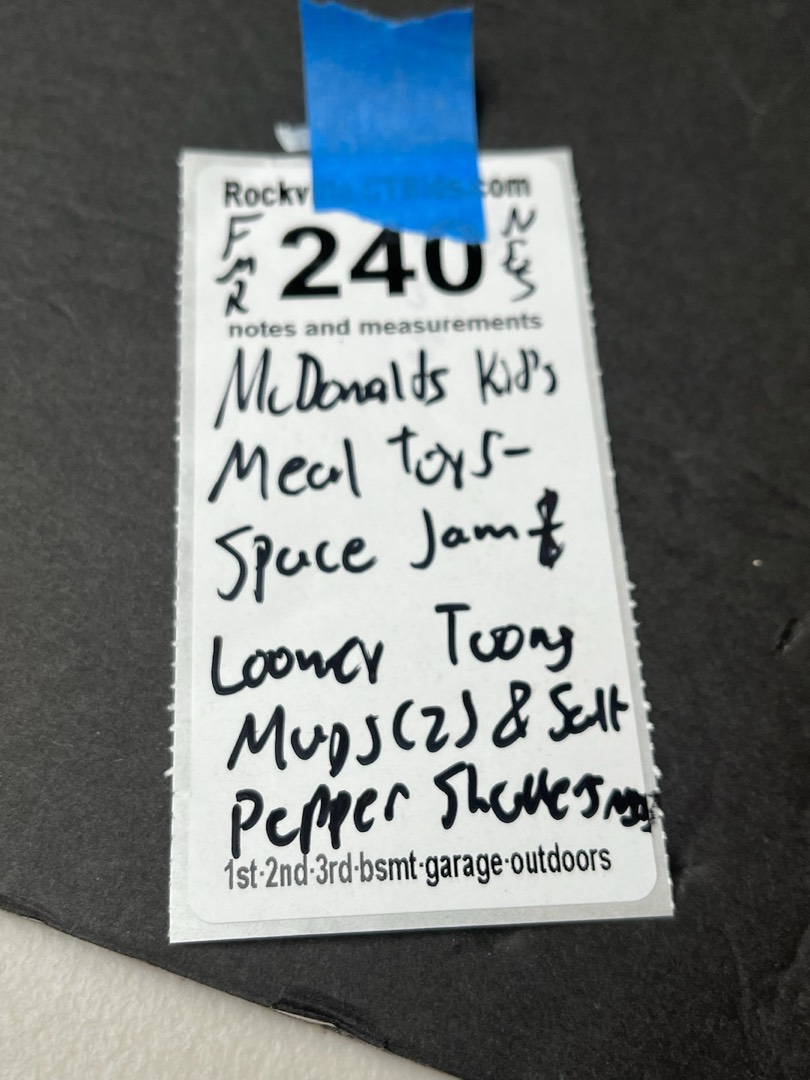 Rockville.CTBids.com
FMR 240 NES
notes and measurements
McDonalds Kid's
Meal toys-
Space Jam &
Looney Toons
Mugs(2) & Salt
Pepper Shakers
1st·2nd·3rd·bsmt·garage·outdoors